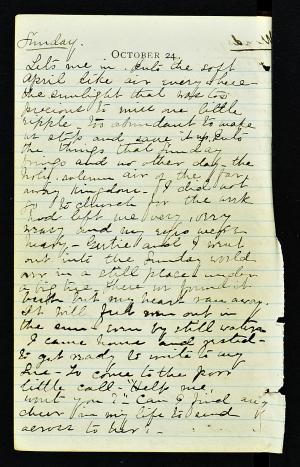 Sunday.
OCTOBER 24
Lets me in. Into the soft
April like air everywhere
the sunlight that was too
precious to miss one little
ripple too abundant to make
us stop and save it up. Into
the things that Sunday
brings and no other day, the
holy, solemn air of the far
away Kingdom. I did not
go to church for the
had left me very, very
weary and my eyes were
heavy - Gertie and I went
out into the Sunday world
in a still place under
a big tree,
but my heart ran away.
It will out in
the sun by still waters
I came home and rested -
to get ready to write to my
Sue - To come to the poor
little call - "Help me,
won't you?" Can I find any
cheer in my life to send
across to her? -